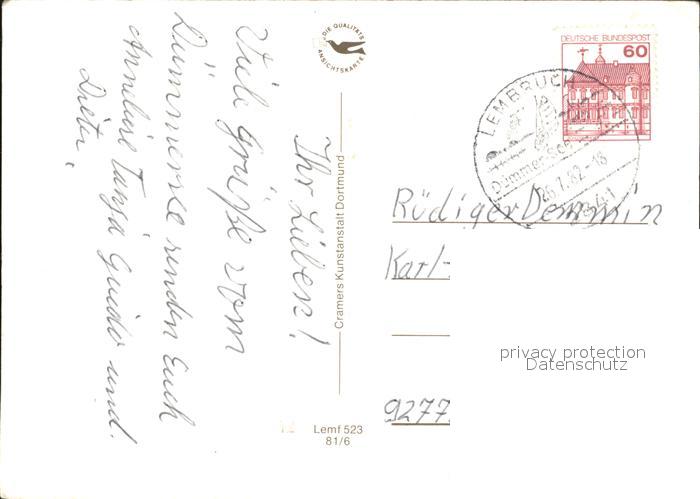 Ihr Lieben!
Viele Grüße vom
Dümmersee senden Euch
Anneliese Tanja Guido und
Dieter.
DIE QUALITÄTS
ANSICHTSKARTE
Cramers Kunstanstalt Dortmund
Lemf 523
81/6
DEUTSCHE BUNDESPOST
60
LEMBRUCH
Dümmer-See
26.7.82-18
2841
Rüdiger Demmin
Karl-
9277
privacy protection
Datenschutz